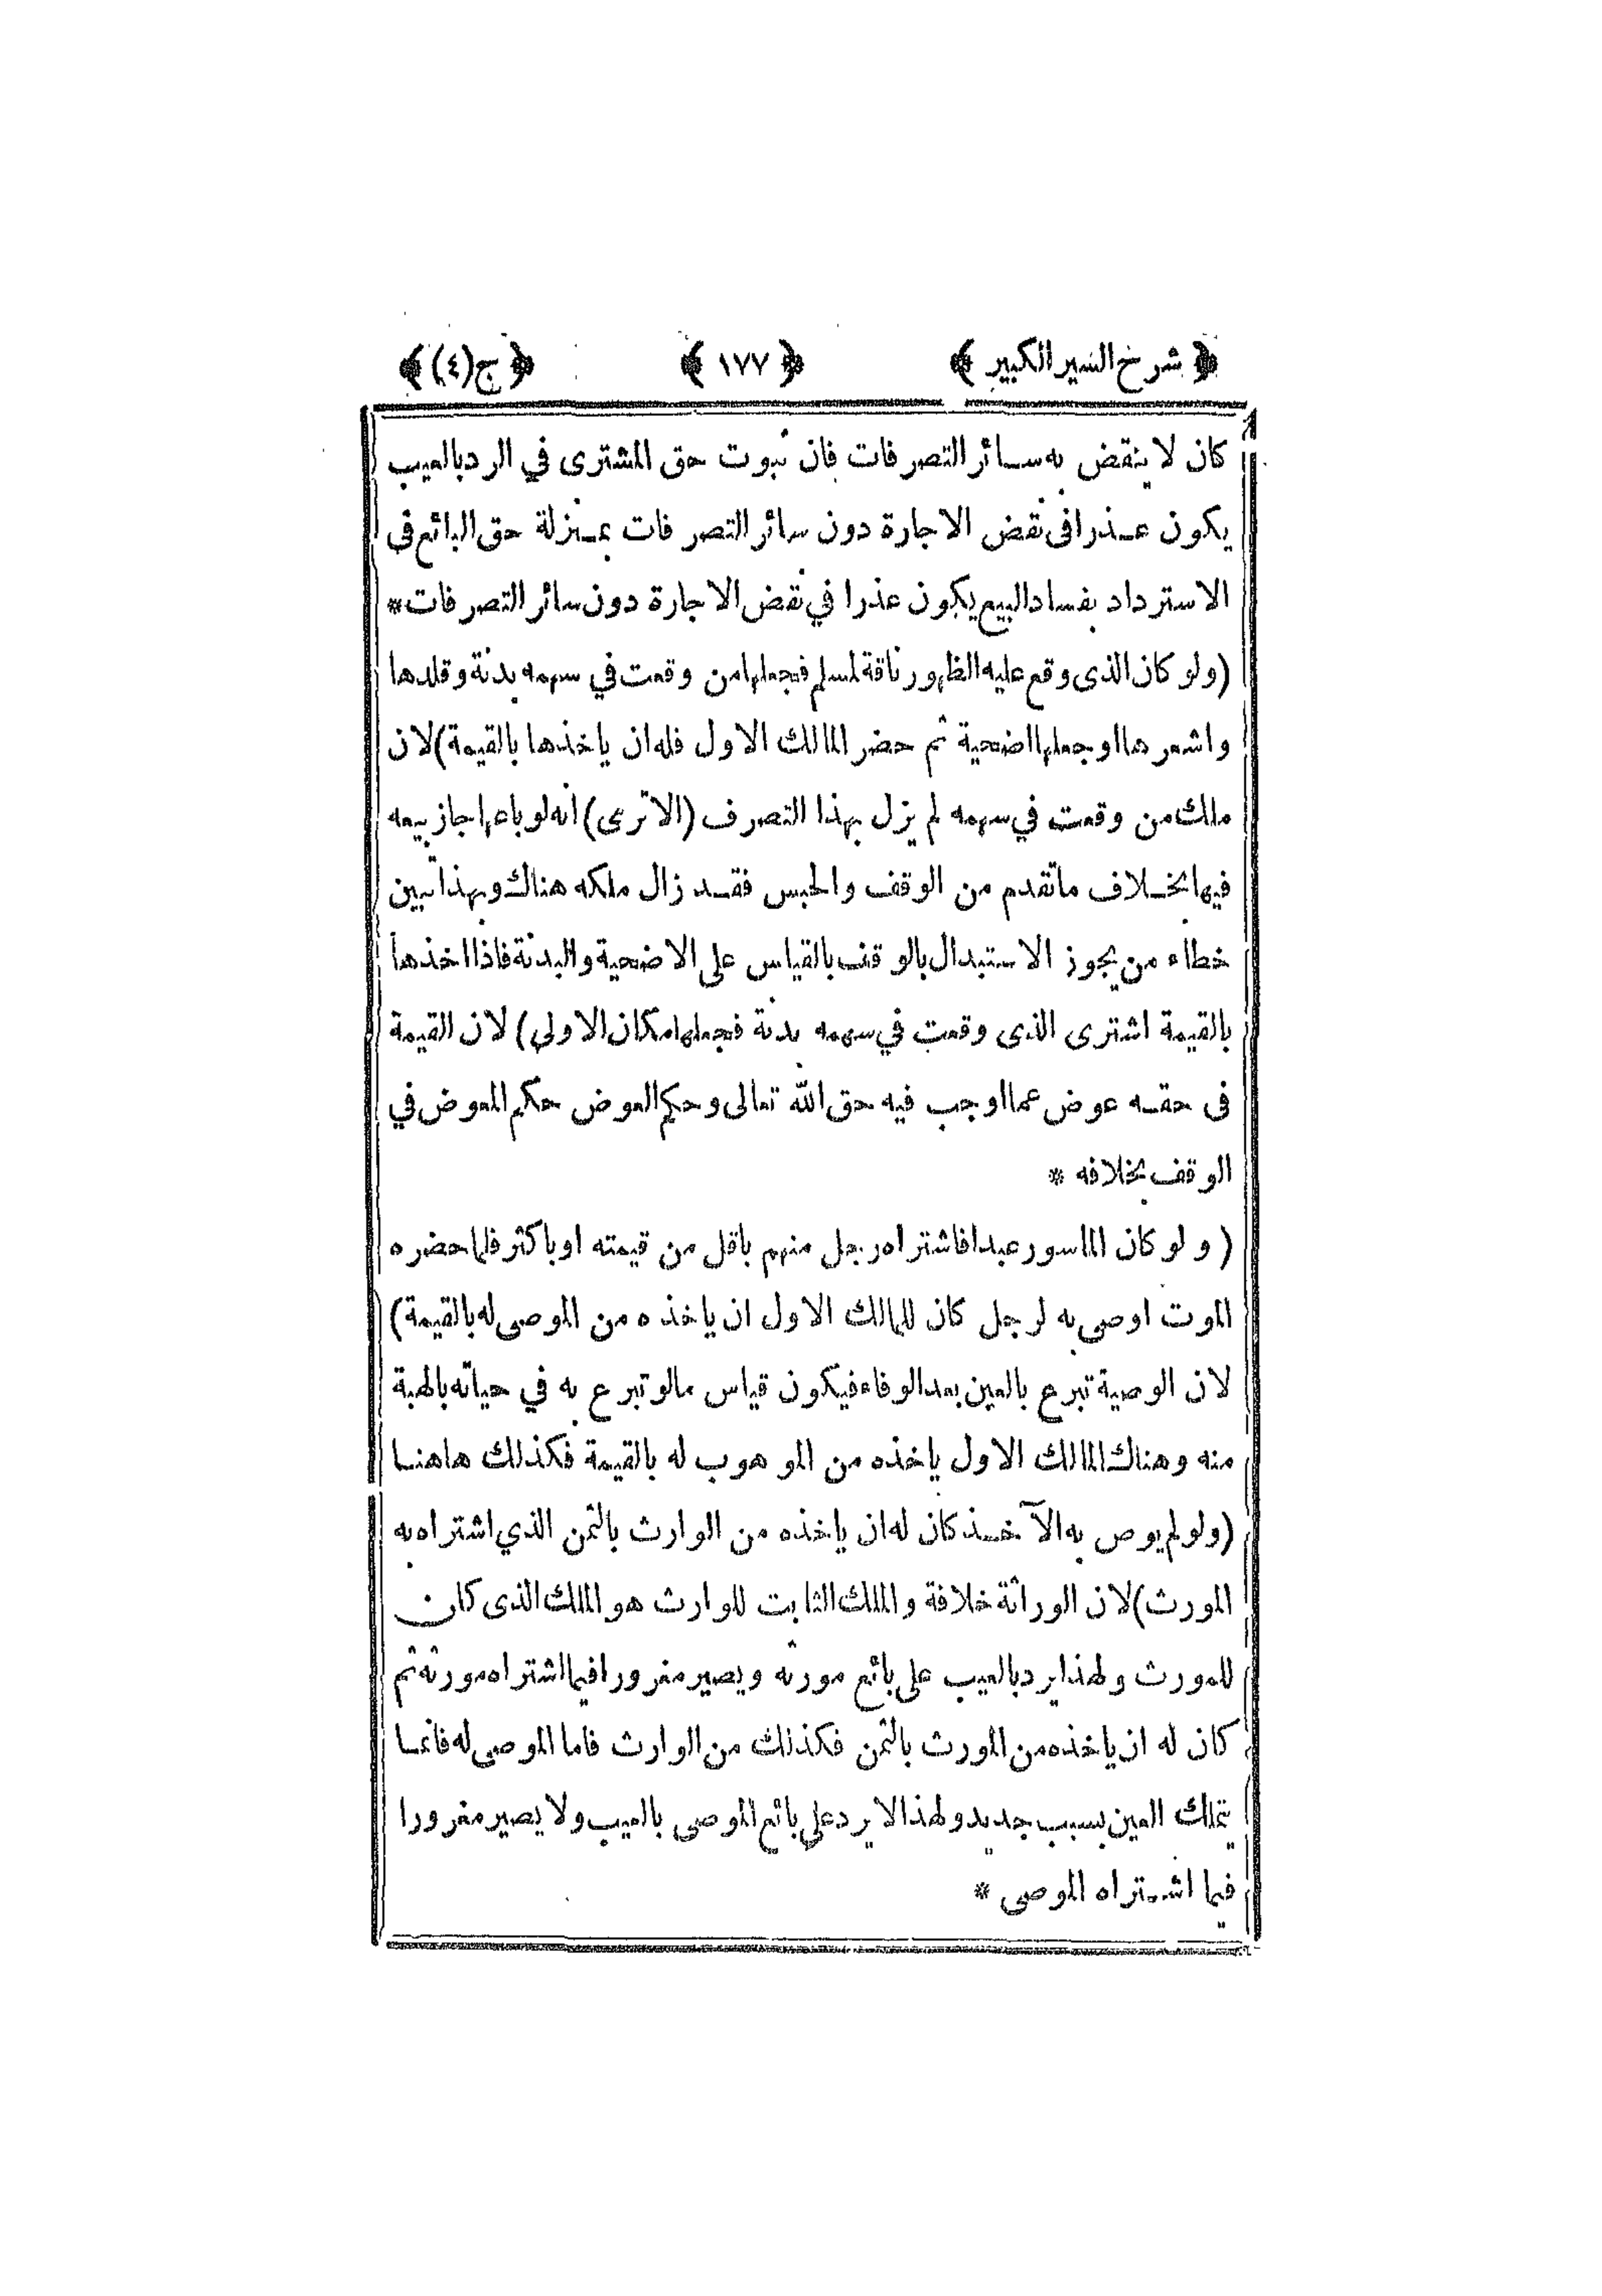 ﴿ شرح السير الكبير ﴾ ﴿ ١٧٧ ﴾ ﴿ ج (٤) ﴾
كان لا ينقض به سائر التصرفات فان ثبوت حق المشترى في الرد بالعيب
يكون عذرا فى نقض الاجارة دون سائر التصرفات بمنزلة حق البائع فى
الاسترداد بفساد البيع يكون عذرا في نقض الاجارة دون سائر التصرفات *
(ولو كان الذى وقع عليه الظهور ناقة لمسلم فجعلها من وقعت في سهمه بدنة وقلدها
واشعرها او جعلها اضحية ثم حضر المالك الاول فله ان ياخذها بالقيمة) لان
ملك من وقعت في سهمه لم يزل بهذا التصرف (الا ترى) انه لو باعها جاز بيعه
فيها بخلاف ما تقدم من الوقف والحبس فقد زال ملكه هناك وبهذا تبين
خطاء من يجوز الاستبدال بالوقف بالقياس على الاضحية والبدنة فاذا اخذها
بالقيمة اشترى الذى وقعت في سهمه بدنة فجعلها مكان الاولي) لان القيمة
فى حقه عوض عما اوجب فيه حق الله تعالى وحكم العوض حكم المعوض في
الوقف بخلافه *
( ولو كان الماسور عبدا فاشتراه رجل منهم باقل من قيمته او باكثر فلما حضره
الموت اوصى به لرجل كان للمالك الاول ان ياخذه من الموصى له بالقيمة)
لان الوصية تبرع بالعين بعد الوفاء فيكون قياس مالو تبرع به في حياته بالهبة
منه وهناك المالك الاول ياخذه من الموهوب له بالقيمة فكذلك هاهنا
(ولو لم يوص به الآخذ كان له ان ياخذه من الوارث بالثمن الذي اشتراه به
المورث) لان الوراثة خلافة والملك الثابت للوارث هو الملك الذى كان
للمورث ولهذا يرد بالعيب على بائع مورثه ويصير مغرورا فيما اشتراه مورثه ثم
كان له ان ياخذه من المورث بالثمن فكذلك من الوارث فاما الموصى له فانما
يتملك العين بسبب جديد ولهذا لا يرد على بائع الموصى بالعيب ولا يصير مغرورا
فيما اشتراه الموصى *